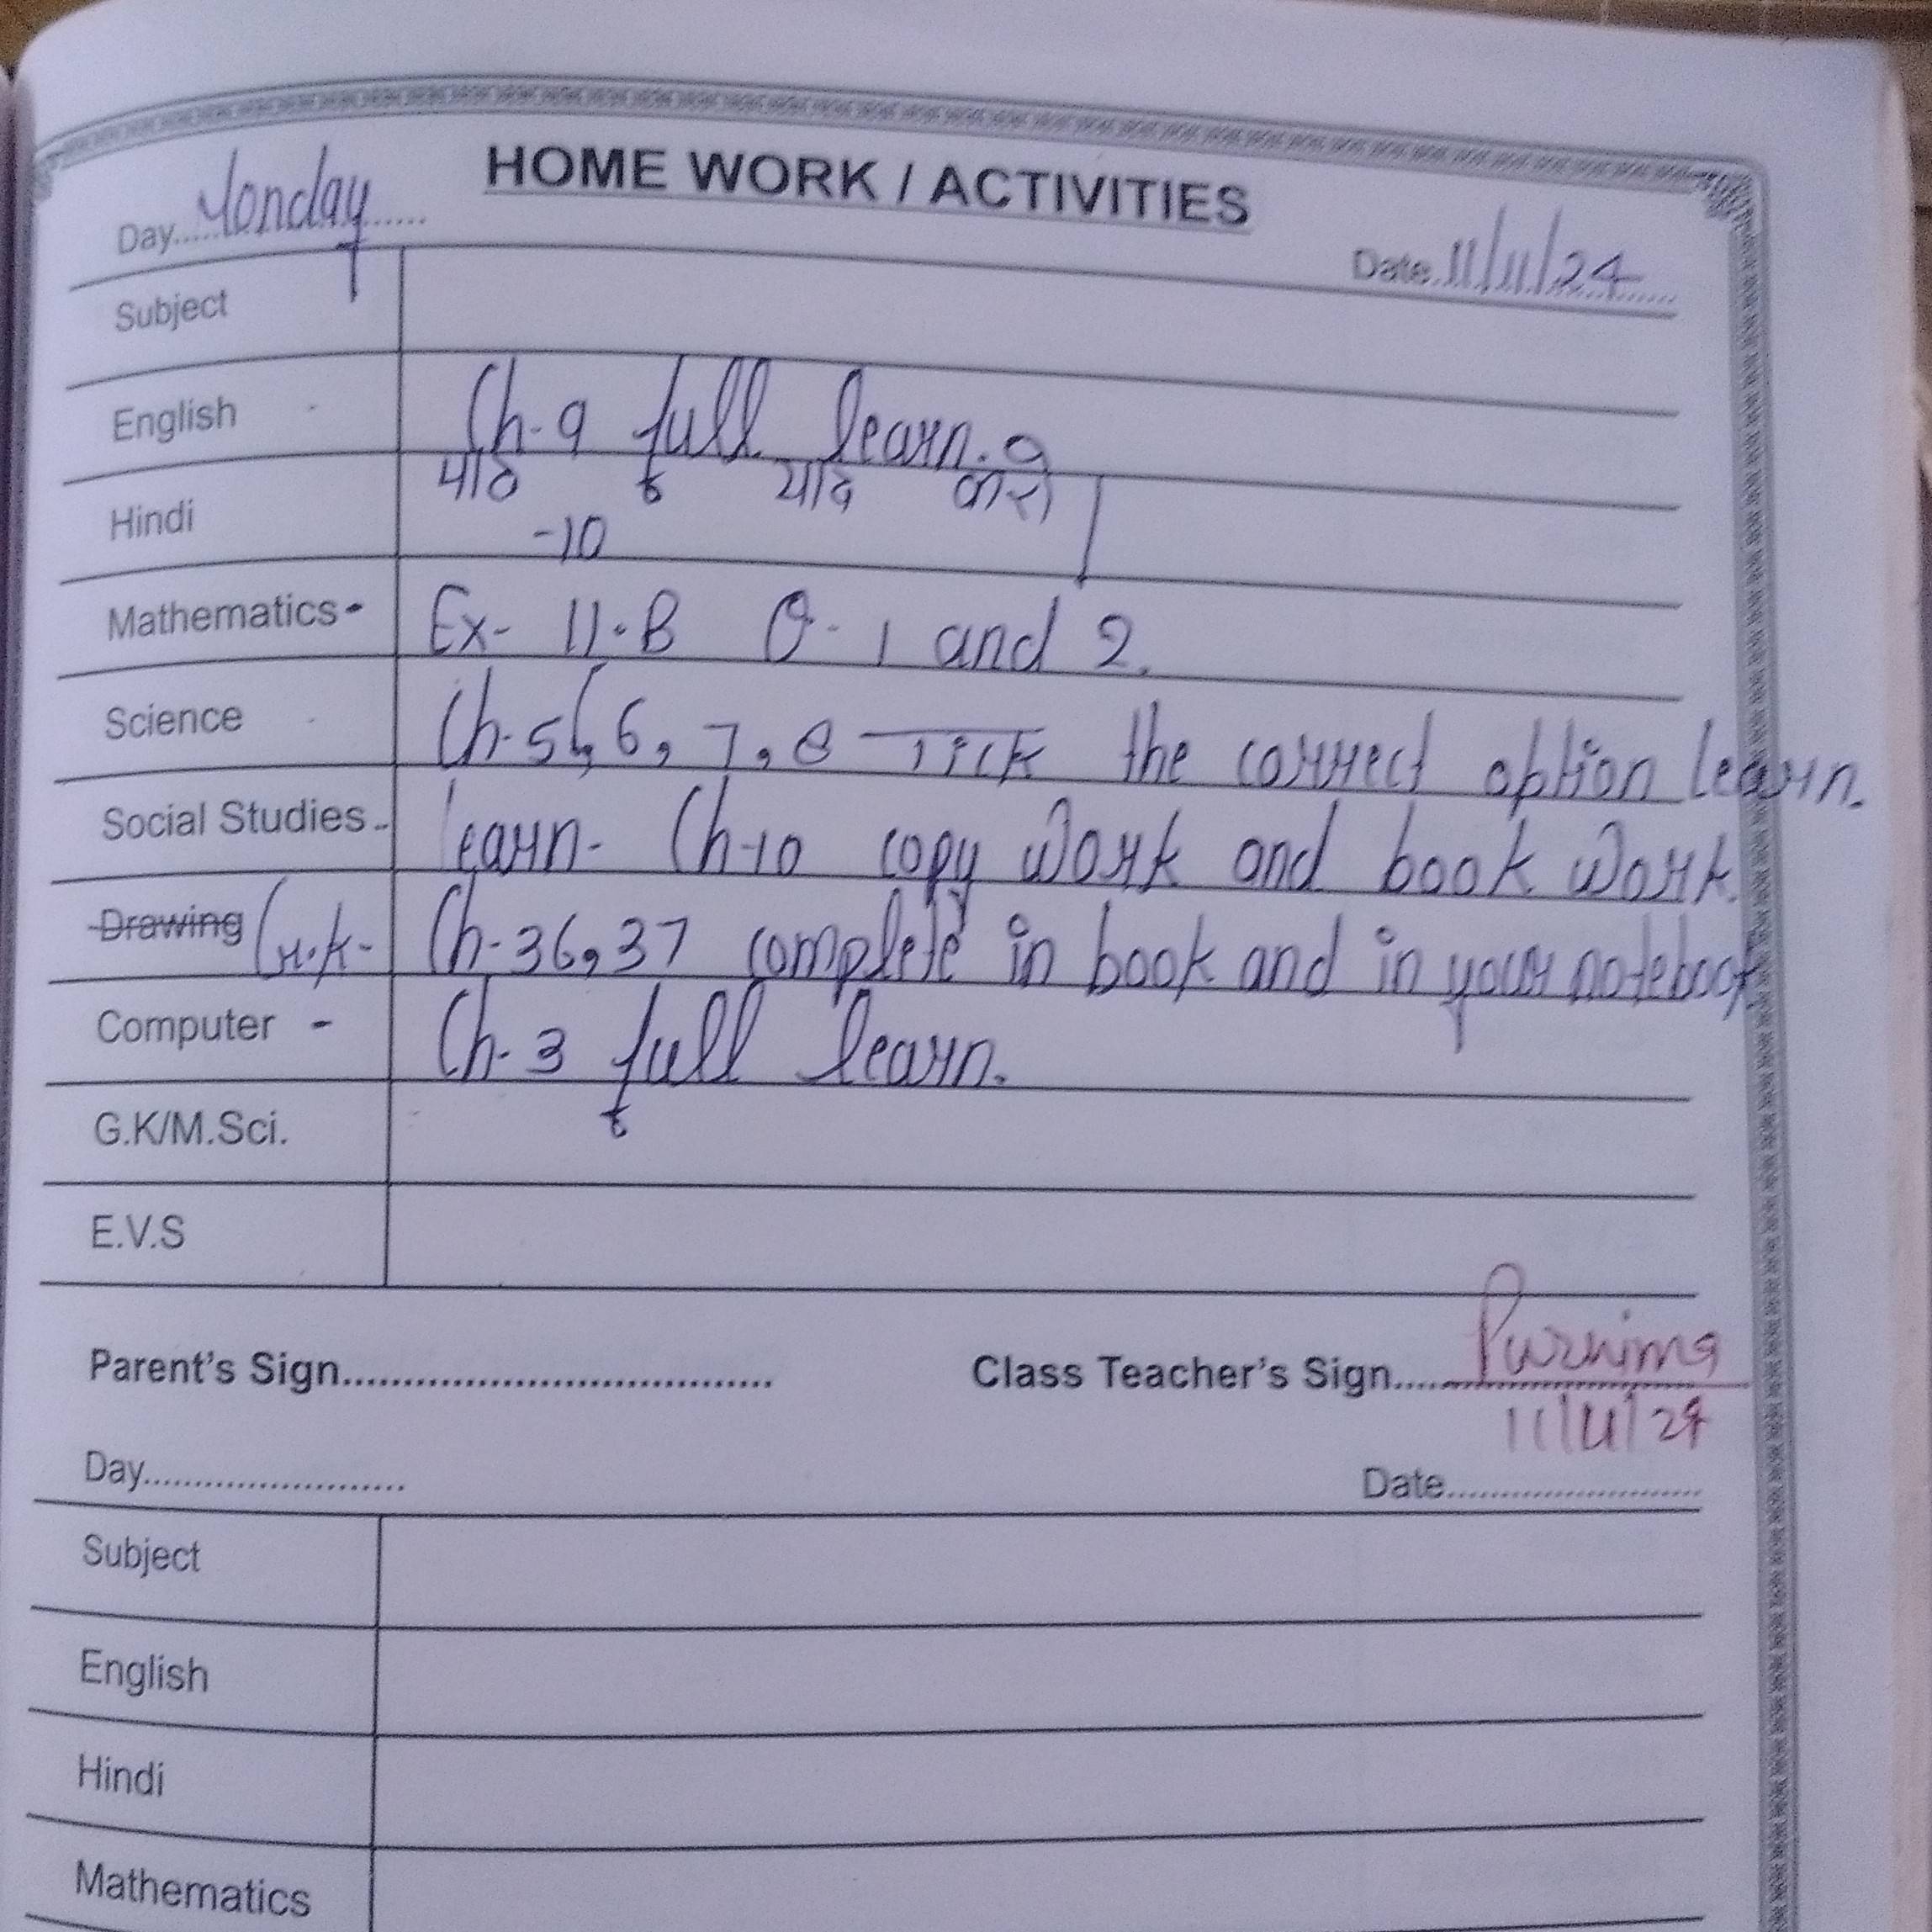 HOME WORK / ACTIVITIES
Day.....Monday......
Date.11/11/24
Subject
English Ch-9 full learn.
Hindi पाठ याद करो।
-10
Mathematics- Ex- 11.B Q- 1 and 2.
Science Ch-5, 6, 7, 8 Tick the correct option learn.
Social Studies- learn- Ch-10 copy work and book work.
Drawing G.K- Ch-36,37 complete in book and in your notebook
Computer - Ch-3 full learn.
G.K/M.Sci.
E.V.S
Parent's Sign.................................... Class Teacher's Sign.....Purnima
11/11/24
Day........................ Date........................
Subject
English
Hindi
Mathematics